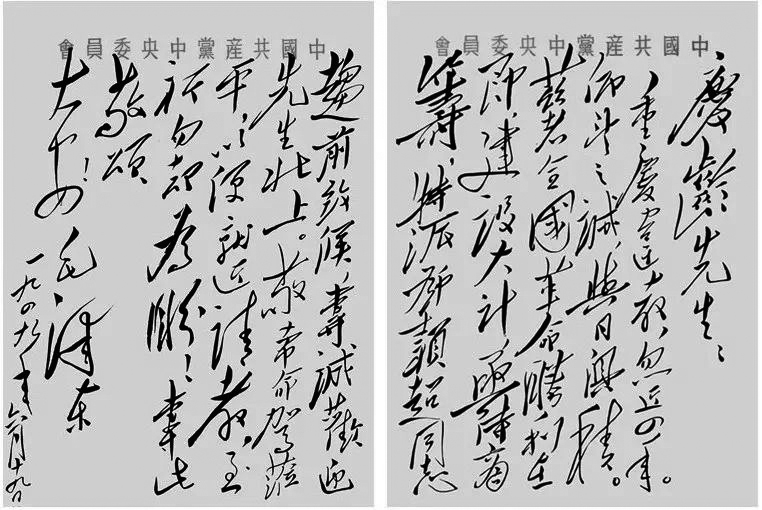 中國共産黨中央委員會
慶齡先生：
重慶違教，忽近四年。
仰望之誠，與日俱積。
兹者全國革命勝利在
即，建設大計，亟待商
籌，特派鄧穎超同志
中國共産黨中央委員會
趨前致候，專誠歡迎
先生北上。敬希命駕蒞
平，以便就近請教，至
祈勿却為盼！專此
敬頌
大安！
毛澤东
一九四九年六月十九日